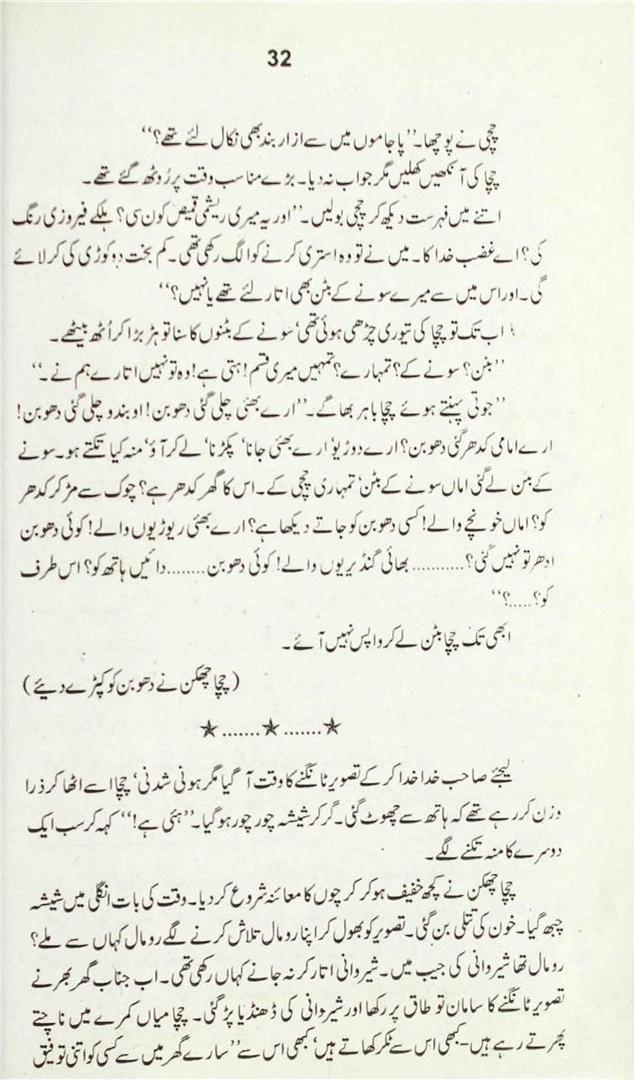 32
چچی نے پوچھا۔ ’’پاجاموں میں سے ازاربند بھی نکال لئے تھے؟‘‘
چچا کی آنکھیں کھلیں مگر جواب نہ دیا۔ بڑے مناسب وقت پر رُوٹھ گئے تھے۔
اتنے میں فہرست دیکھ کر چچی بولیں۔ ’’اور یہ میری ریشمی قمیص کون سی؟ ہلکے فیروزی رنگ
کی؟ اے غضب خدا کا۔ میں نے تو وہ استری کرنے کو الگ رکھی تھی۔ کم بخت دو کوڑی کی کر لائے
گی۔ اور اس میں سے میرے سونے کے بٹن بھی اتار لئے تھے یا نہیں؟‘‘
اب تک تو چچا کی تیوری چڑھی ہوئی تھی‘ سونے کے بٹنوں کا سنا تو ہڑبڑا کر اُٹھ بیٹھے۔
’’بٹن؟ سونے کے؟ تمہارے؟ تمہیں میری قسم! ہتی ہے! وہ تو نہیں اتارے ہم نے۔‘‘
’’جوتی پہنتے ہوئے چچا باہر بھاگے۔ ’’ارے بھئی چلی گئی دھوبن! او بندو چلی گئی دھوبن!
ارے امامی کدھر گئی دھوبن؟ ارے دوڑیو‘ ارے بھئی جانا‘ پکڑنا‘ لے کر آؤ‘ منہ کیا تکتے ہو۔ سونے
کے بٹن لے گئی اماں سونے کے بٹن‘ تمہاری چچی کے۔ اس کا گھر کدھر ہے؟ چوک سے مڑ کر کدھر
کو؟ اماں خونچے والے! کسی دھوبن کو جاتے دیکھا ہے؟ ارے بھئی ریوڑیوں والے! کوئی دھوبن
ادھر تو نہیں گئی؟ ........... بھائی گنڈیریوں والے! کوئی دھوبن........ دائیں ہاتھ کو؟ اس طرف
کو؟ .....؟‘‘
ابھی تک چچا بٹن لے کر واپس نہیں آئے۔
(چچا چھکن نے دھوبن کو کپڑے دیئے)
★.......★.......★
لیجئے صاحب خدا خدا کر کے تصویر ٹانگنے کا وقت آ گیا مگر ہونی شدنی‘ چچا اسے اٹھا کر ذرا
وزن کر رہے تھے کہ ہاتھ سے چھوٹ گئی۔ گر کر شیشہ چور چور ہو گیا۔ ’’ہئی ہے!‘‘ کہہ کر سب ایک
دوسرے کا منہ تکنے لگے۔
چچا چھکن نے کچھ خفیف ہو کر کرچوں کا معائنہ شروع کر دیا۔ وقت کی بات انگلی میں شیشہ
چبھ گیا۔ خون کی تللی بن گئی۔ تصویر کو بھول کر اپنا رومال تلاش کرنے لگے رومال کہاں سے ملے؟
رومال تھا شیروانی کی جیب میں۔ شیروانی اتار کر نہ جانے کہاں رکھی تھی۔ اب جناب گھر بھر نے
تصویر ٹانگنے کا سامان تو طاق پر رکھا اور شیروانی کی ڈھنڈیا پڑ گئی۔ چچا میاں کمرے میں ناچتے
پھرتے رہے ہیں۔ کبھی اس سے ٹکر کھاتے ہیں‘ کبھی اس سے ’’سارے گھر میں سے کسی کو اتنی توفیق